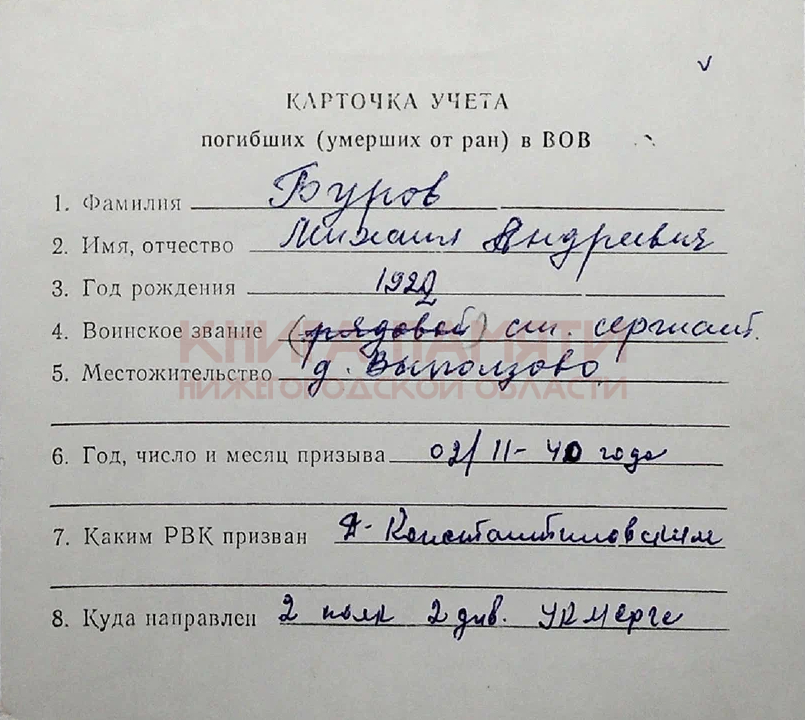 КАРТОЧКА УЧЕТА
погибших (умерших от ран) в ВОВ
1. Фамилия Буров
2. Имя, отчество Михаил Андреевич
3. Год рождения 1922
4. Воинское звание (рядовой) ст. сержант.
КНИГА ПАМЯТИ
5. Местожительство д. Выползово
НИЖЕГОРОДСКОЙ ОБЛАСТИ
6. Год, число и месяц призыва 02/11-40 года
7. Каким РВК призван Д-Константиновским
8. Куда направлен 2 полк 2 див. Укмерге